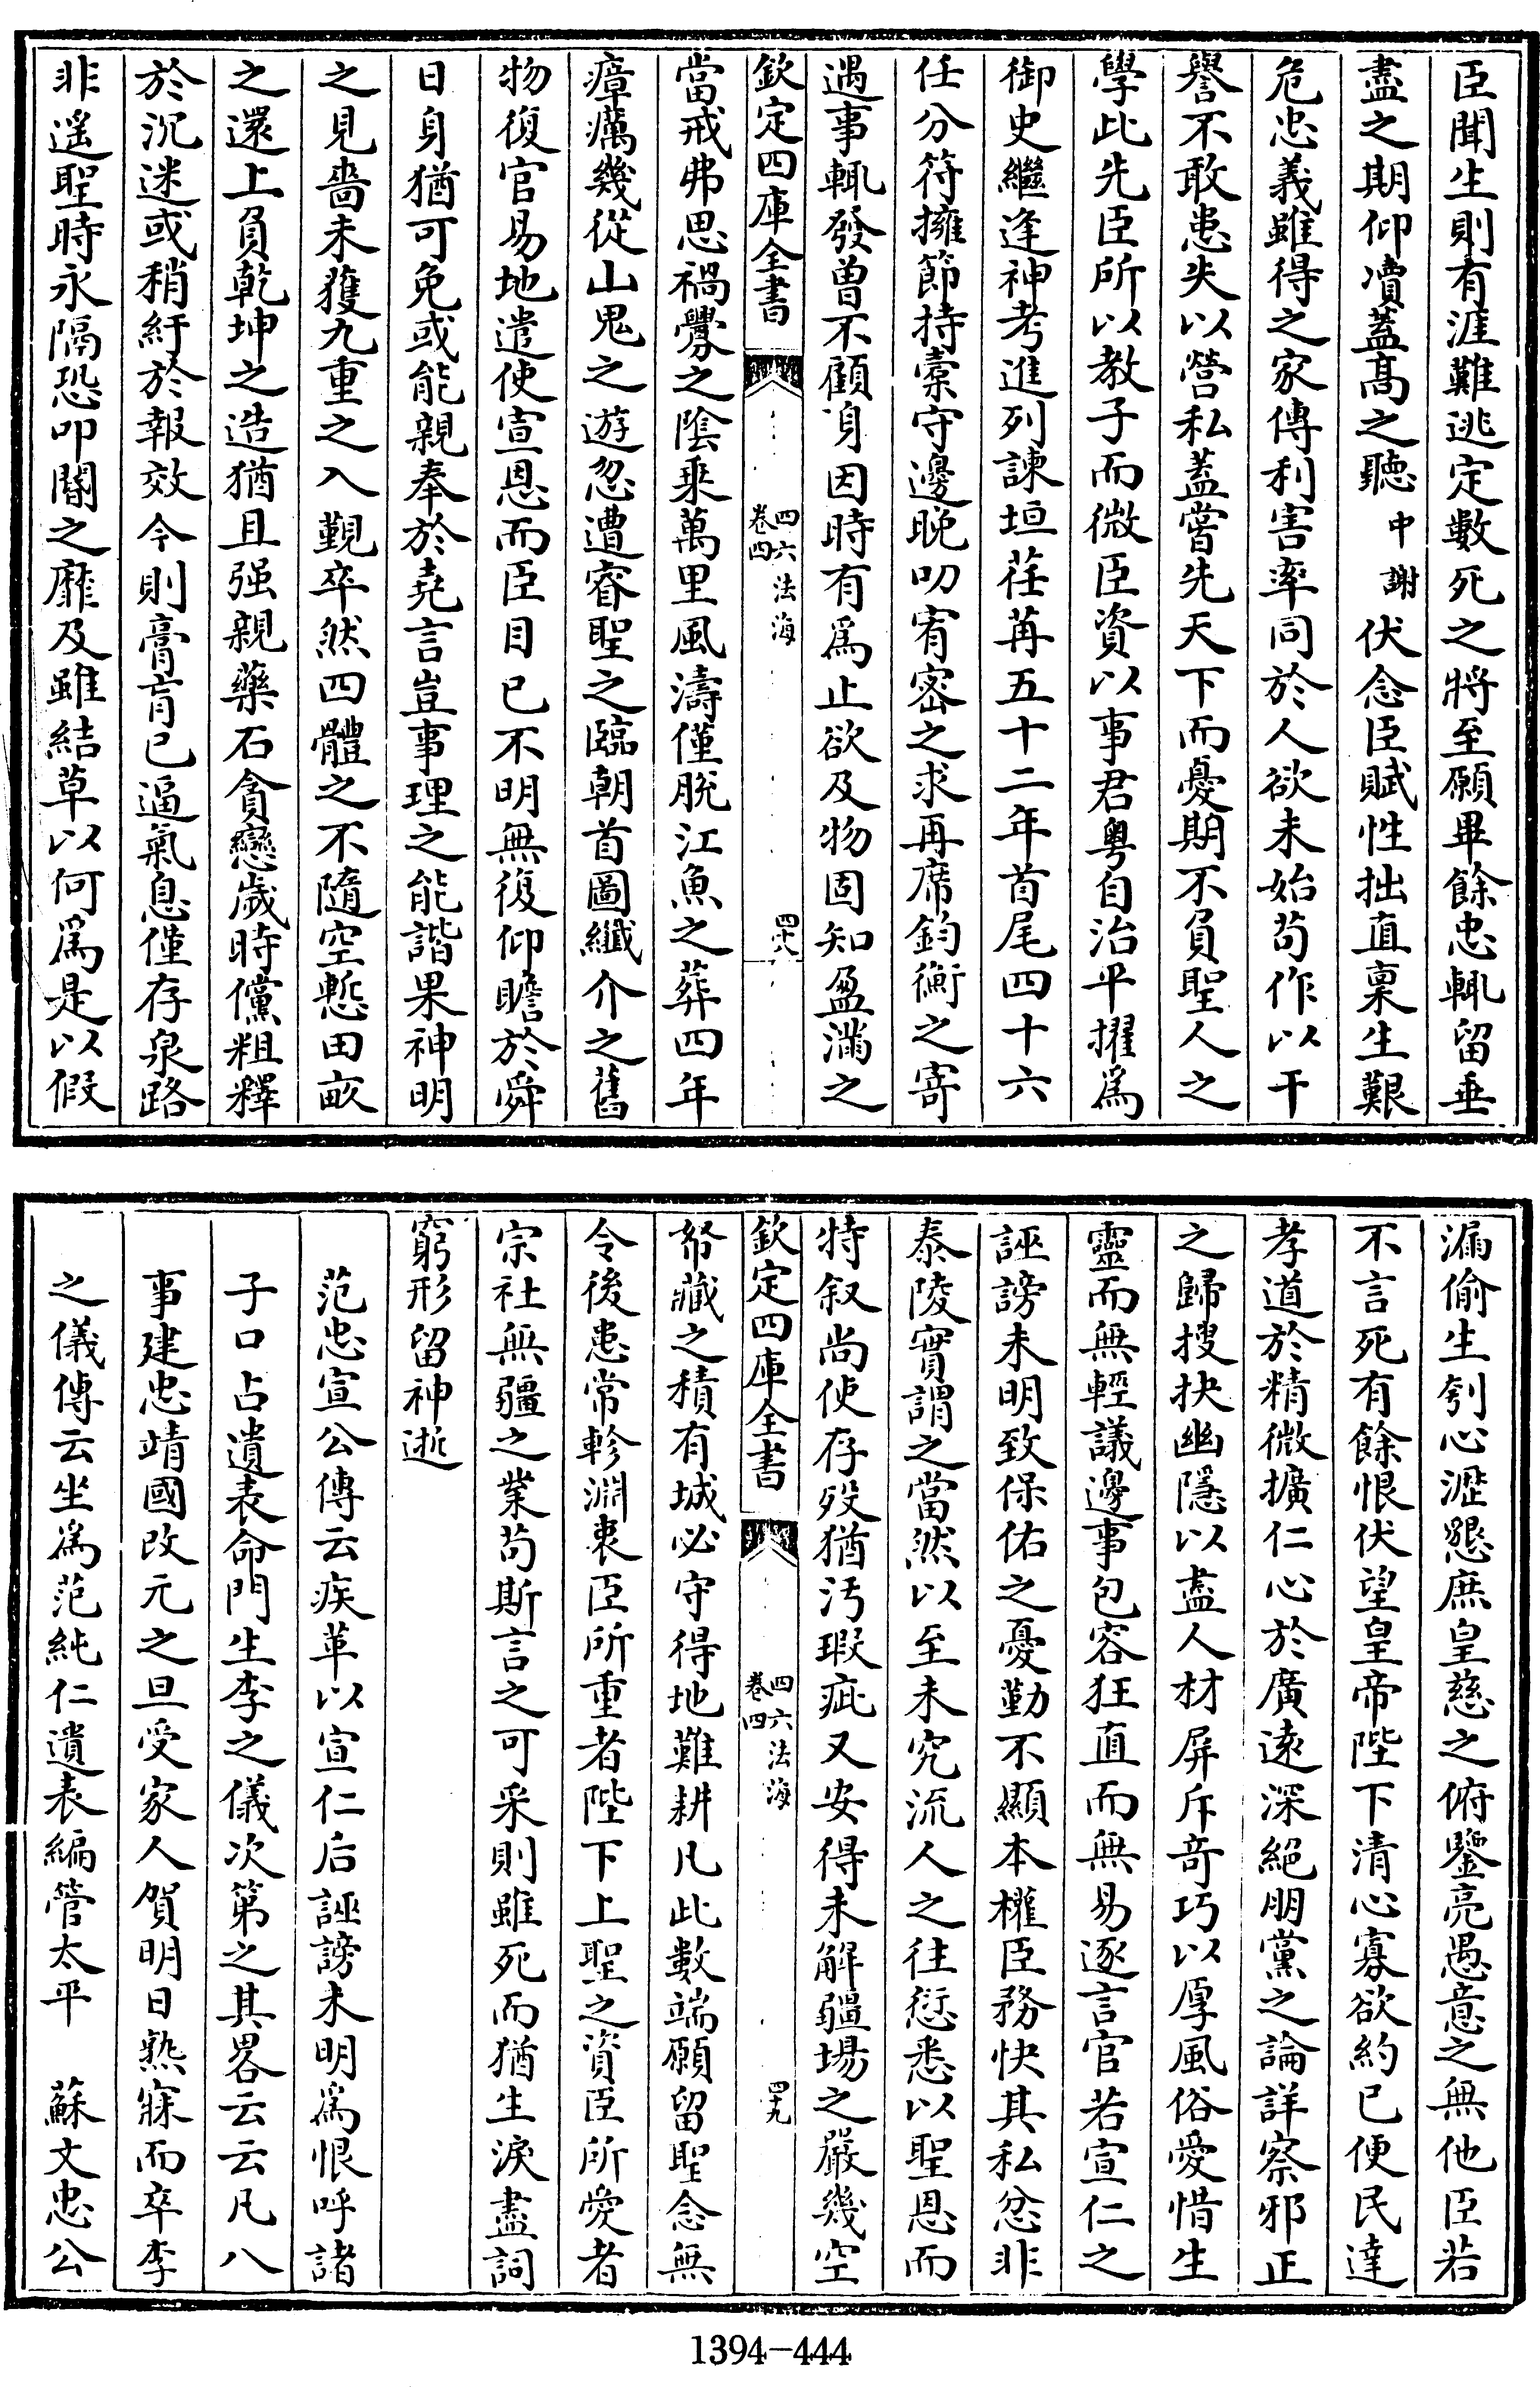 臣聞生則有涯難逃定數死之將至願畢餘忠輒留垂
盡之期仰凟蓋髙之聽中謝伏念臣賦性拙直禀生艱
危忠義雖得之家傳利害率同於人欲未始苟作以干
譽不敢患失以營私蓋嘗先天下而憂期不負聖人之
學此先臣所以教子而微臣資以事君粤自治平擢爲
御史繼逢神考進列諫垣荏苒五十二年首尾四十六
任分符擁節持橐守邊晚叨宥密之求再席鈞衡之寄
遇事輒發曾不顧身因時有爲止欲及物固知盈滿之
欽定四庫全書
四六法海
卷四
四十八
當戒弗思禍釁之陰乘萬里風濤僅脱江魚之葬四年
瘴癘幾從山鬼之遊忽遭睿聖之臨朝首圖纖介之舊
物復官易地遣使宣恩而臣目已不明無復仰瞻於舜
日身猶可免或能親奉於堯言豈事理之能諧果神明
之見嗇未獲九重之入覲卒然四體之不隨空慙田畝
之還上負乾坤之造猶且强親藥石貪戀歲時儻粗釋
於沉迷或稍紓於報效今則膏肓已逼氣息僅存泉路
非遥聖時永隔恐叩閽之靡及雖結草以何爲是以假
漏偷生刳心瀝懇庶皇慈之俯鑒亮愚意之無他臣若
不言死有餘恨伏望皇帝陛下清心寡欲約已便民達
孝道於精微擴仁心於廣逺深絶朋黨之論詳察邪正
之歸搜抉幽隱以盡人材屏斥竒巧以厚風俗愛惜生
靈而無輕議邊事包容狂直而無易逐言官若宣仁之
誣謗未明致保佑之憂勤不顯本權臣務快其私忿非
泰陵實謂之當然以至未究流人之往愆悉以聖恩而
特叙尚使存殁猶汚瑕疵又安得未解疆場之嚴幾空
欽定四庫全書
四六法海
卷四
四十九
帑藏之積有城必守得地難耕凡此數端願留聖念無
令後患常軫淵衷臣所重者陛下上聖之資臣所愛者
宗社無疆之業苟斯言之可采則雖死而猶生淚盡詞
窮形留神逝
范忠宣公傳云疾革以宣仁后誣謗未明爲恨呼諸
子口占遺表命門生李之儀次第之其畧云云凡八
事建忠靖國改元之旦受家人賀明日熟寐而卒李
之儀傳云坐爲范純仁遺表編管太平　蘇文忠公
1394-444